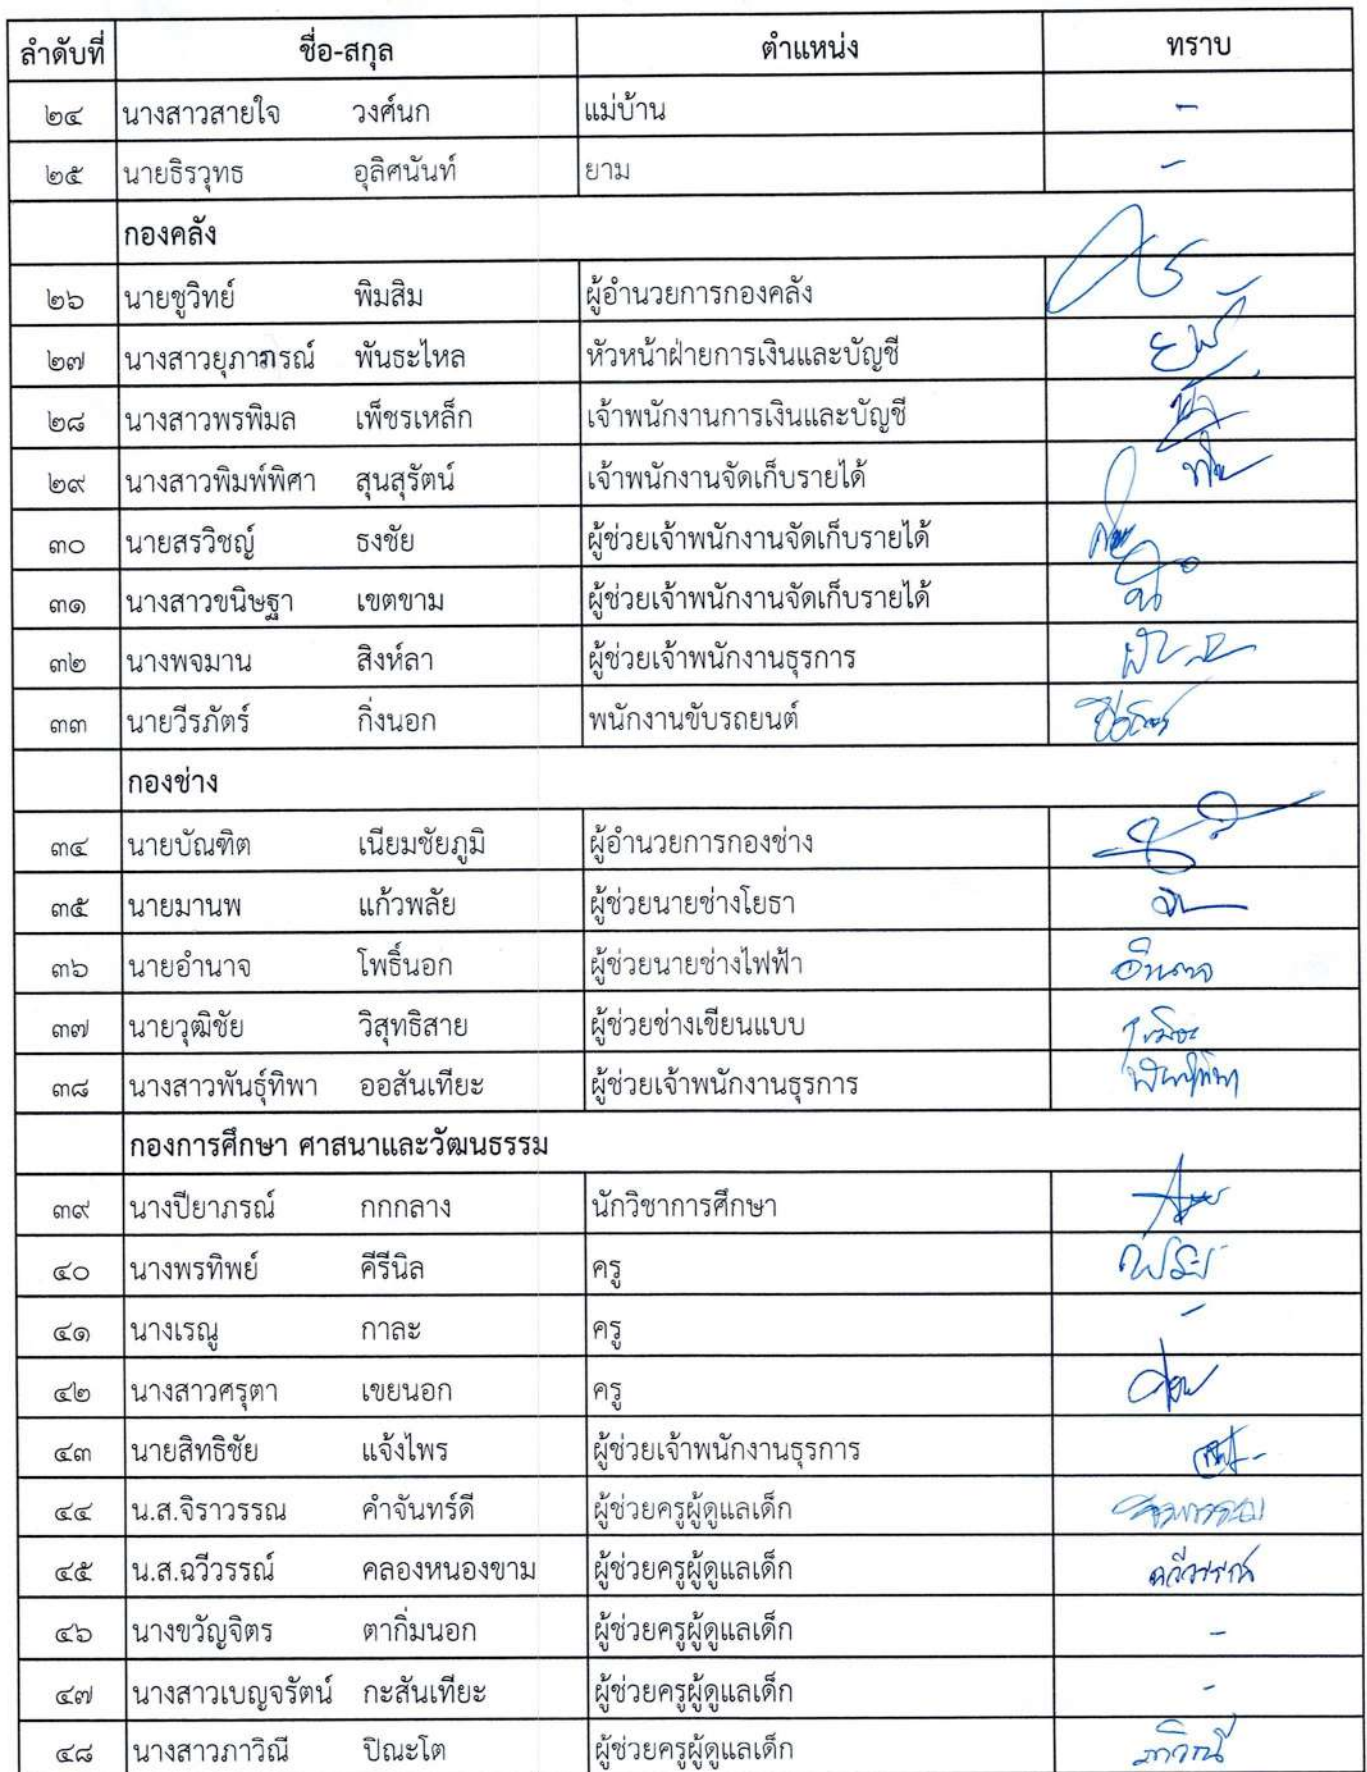 ลำดับที่ ชื่อ-สกุล ตำแหน่ง ทราบ
๒๔ นางสาวสายใจ วงศ์นก แม่บ้าน -
๒๕ นายธิรวุทธ อุลิศนันท์ ยาม -
กองคลัง
๒๖ นายชูวิทย์ พิมสิม ผู้อำนวยการกองคลัง
๒๗ นางสาวยุภาภรณ์ พันธะไหล หัวหน้าฝ่ายการเงินและบัญชี
๒๘ นางสาวพรพิมล เพ็ชรเหล็ก เจ้าพนักงานการเงินและบัญชี
๒๙ นางสาวพิมพ์พิศา สุนสุรัตน์ เจ้าพนักงานจัดเก็บรายได้
๓๐ นายสรวิชญ์ ธงชัย ผู้ช่วยเจ้าพนักงานจัดเก็บรายได้
๓๑ นางสาวขนิษฐา เขตขาม ผู้ช่วยเจ้าพนักงานจัดเก็บรายได้
๓๒ นางพจมาน สิงห์ลา ผู้ช่วยเจ้าพนักงานธุรการ
๓๓ นายวีรภัตร์ กิ่งนอก พนักงานขับรถยนต์
กองช่าง
๓๔ นายบัณฑิต เนียมชัยภูมิ ผู้อำนวยการกองช่าง
๓๕ นายมานพ แก้วพลัย ผู้ช่วยนายช่างโยธา
๓๖ นายอำนาจ โพธิ์นอก ผู้ช่วยนายช่างไฟฟ้า อำนาจ
๓๗ นายวุฒิชัย วิสุทธิสาย ผู้ช่วยช่างเขียนแบบ
๓๘ นางสาวพันธุ์ทิพา ออสันเทียะ ผู้ช่วยเจ้าพนักงานธุรการ
กองการศึกษา ศาสนาและวัฒนธรรม
๓๙ นางปิยาภรณ์ กกกลาง นักวิชาการศึกษา
๔๐ นางพรทิพย์ คีรีนิล ครู
๔๑ นางเรณู กาละ ครู -
๔๒ นางสาวศรุตา เขยนอก ครู
๔๓ นายสิทธิชัย แจ้งไพร ผู้ช่วยเจ้าพนักงานธุรการ
๔๔ น.ส.จิราวรรณ คำจันทร์ดี ผู้ช่วยครูผู้ดูแลเด็ก
๔๕ น.ส.ฉวีวรรณ์ คลองหนองขาม ผู้ช่วยครูผู้ดูแลเด็ก ฉวีวรรณ์
๔๖ นางขวัญจิตร ตากิ่มนอก ผู้ช่วยครูผู้ดูแลเด็ก -
๔๗ นางสาวเบญจรัตน์ กะสันเทียะ ผู้ช่วยครูผู้ดูแลเด็ก -
๔๘ นางสาวภาวิณี ปิณะโต ผู้ช่วยครูผู้ดูแลเด็ก ภาวิณี